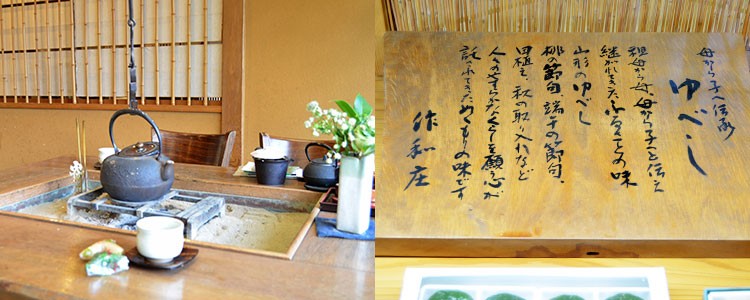 母から子へ伝承
ゆべし
祖母から母、母から子へと伝え
継がれてきたふるさとの味
山形のゆべし
桃の節句、端午の節句、
田植え、秋の取り入れなど
人々のやすらかなくらしを願う心が
託されてきたぬくもりの味です
作和庄